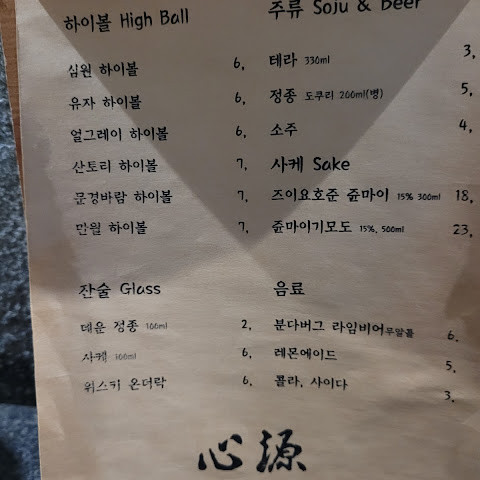 하이볼 High Ball
심원 하이볼 6,
유자 하이볼 6,
얼그레이 하이볼 6,
산토리 하이볼 7,
문경바람 하이볼 7,
만월 하이볼 7,
잔술 Glass
데운 정종 100ml 2,
사케 100ml 6,
위스키 온더락 6,
주류 Soju & Beer
테라 330ml 3,
정종 도쿠리 200ml(병) 5,
소주 4,
사케 Sake
즈이요호준 쥰마이 15% 300ml 18,
쥰마이기모도 15%, 500ml 23,
음료
분다버그 라임비어무알콜 6.
레몬에이드 5.
콜라, 사이다 3.
心源